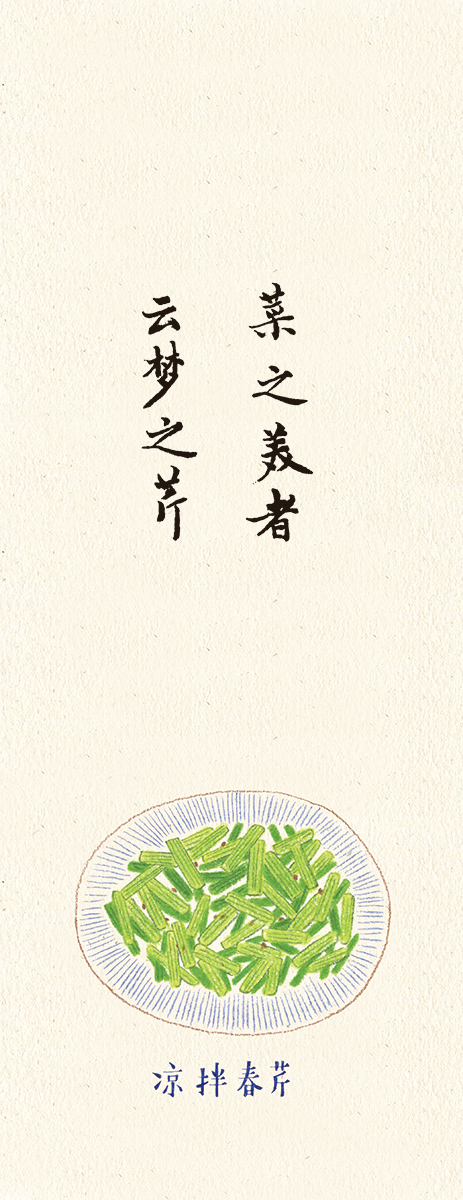 菜之美者
云梦之芹
凉拌春芹